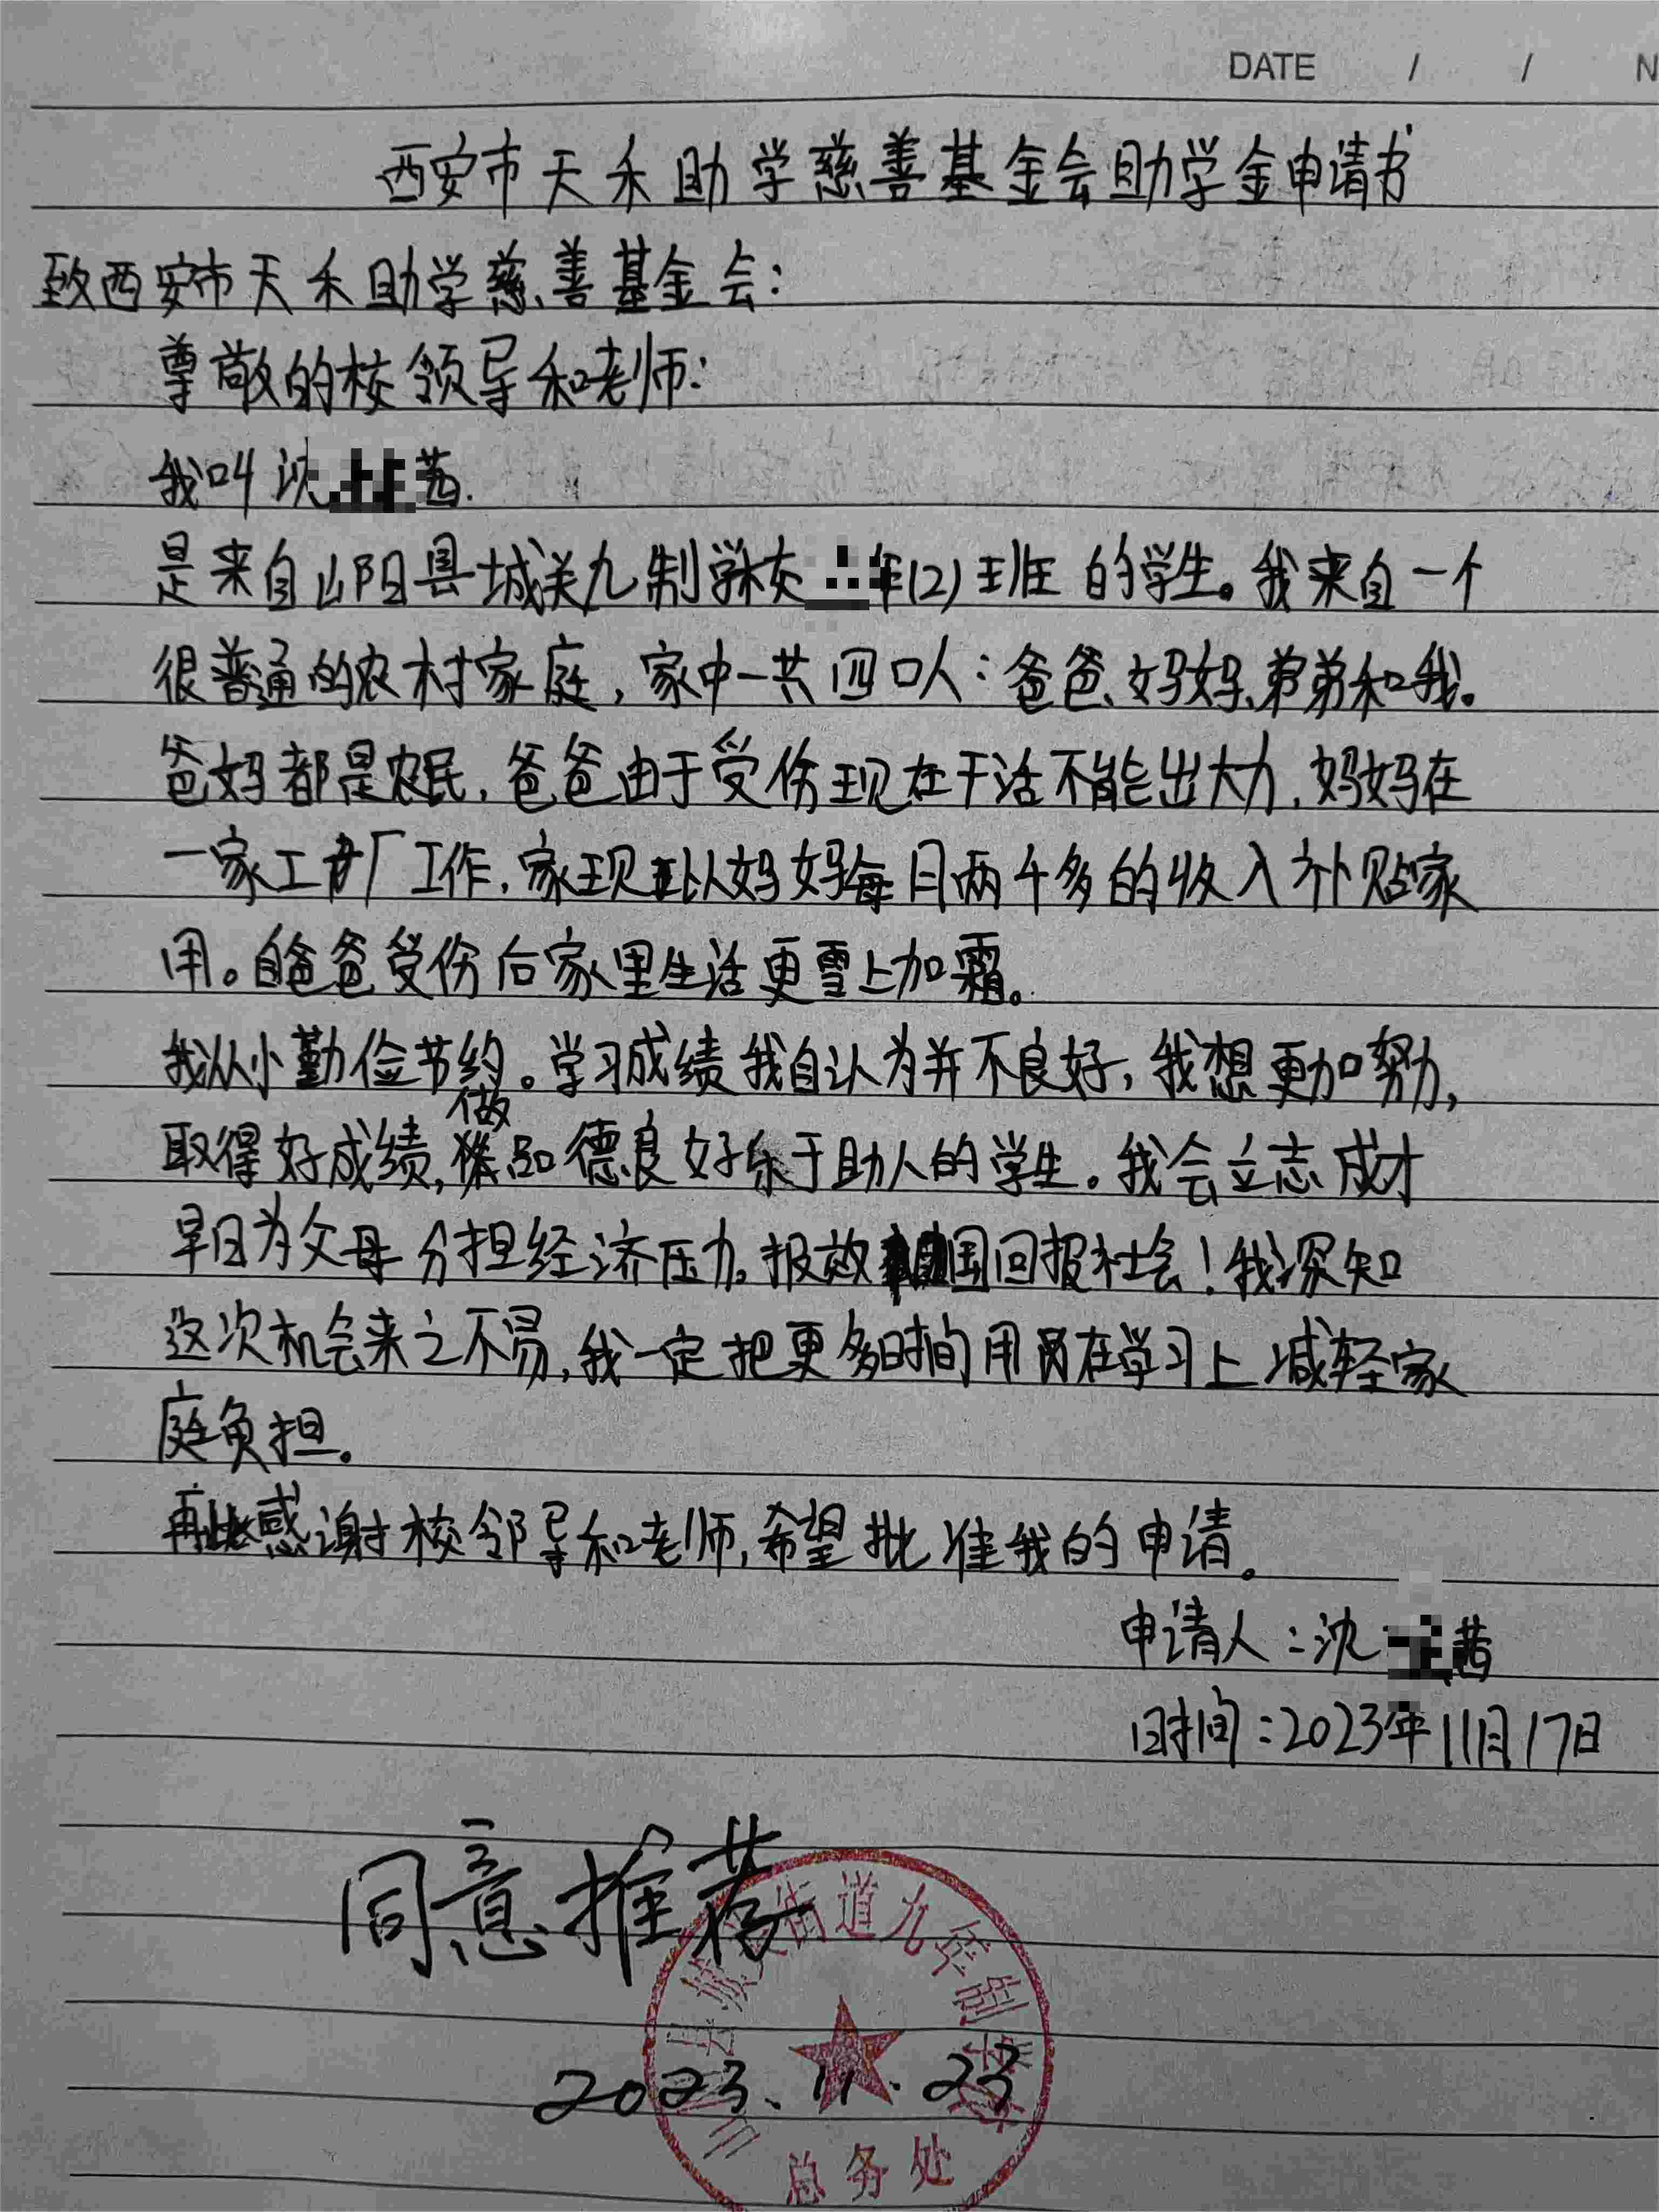 DATE / / N
西安市天禾助学慈善基金会助学金申请书
致西安市天禾助学慈善基金会：
尊敬的校领导和老师：
我叫沈 茜.
是来自山阳县城关九制学校 年(2)班的学生。我来自一个
很普通的农村家庭，家中一共四口人：爸爸、妈妈、弟弟和我。
爸妈都是农民，爸爸由于受伤现在干活不能出大力，妈妈在
一家工厂工作，家现以妈妈每月两千多的收入补贴家
用。自爸爸受伤后家里生活更雪上加霜。
我从小勤俭节约。学习成绩我自认为并不良好，我想更加努力，
取得好成绩，做品德良好乐于助人的学生。我会立志成才
早日为父母分担经济压力。报效国回报社会！我深知
这次机会来之不易，我一定把更多时间用在学习上减轻家
庭负担。
再此感谢校邻导和老师，希望批准我的申请。
申请人：沈 茜
时间：2023年11月17日
同意推荐
2023.11.23
山阳县城关街道九年制学校
总务处